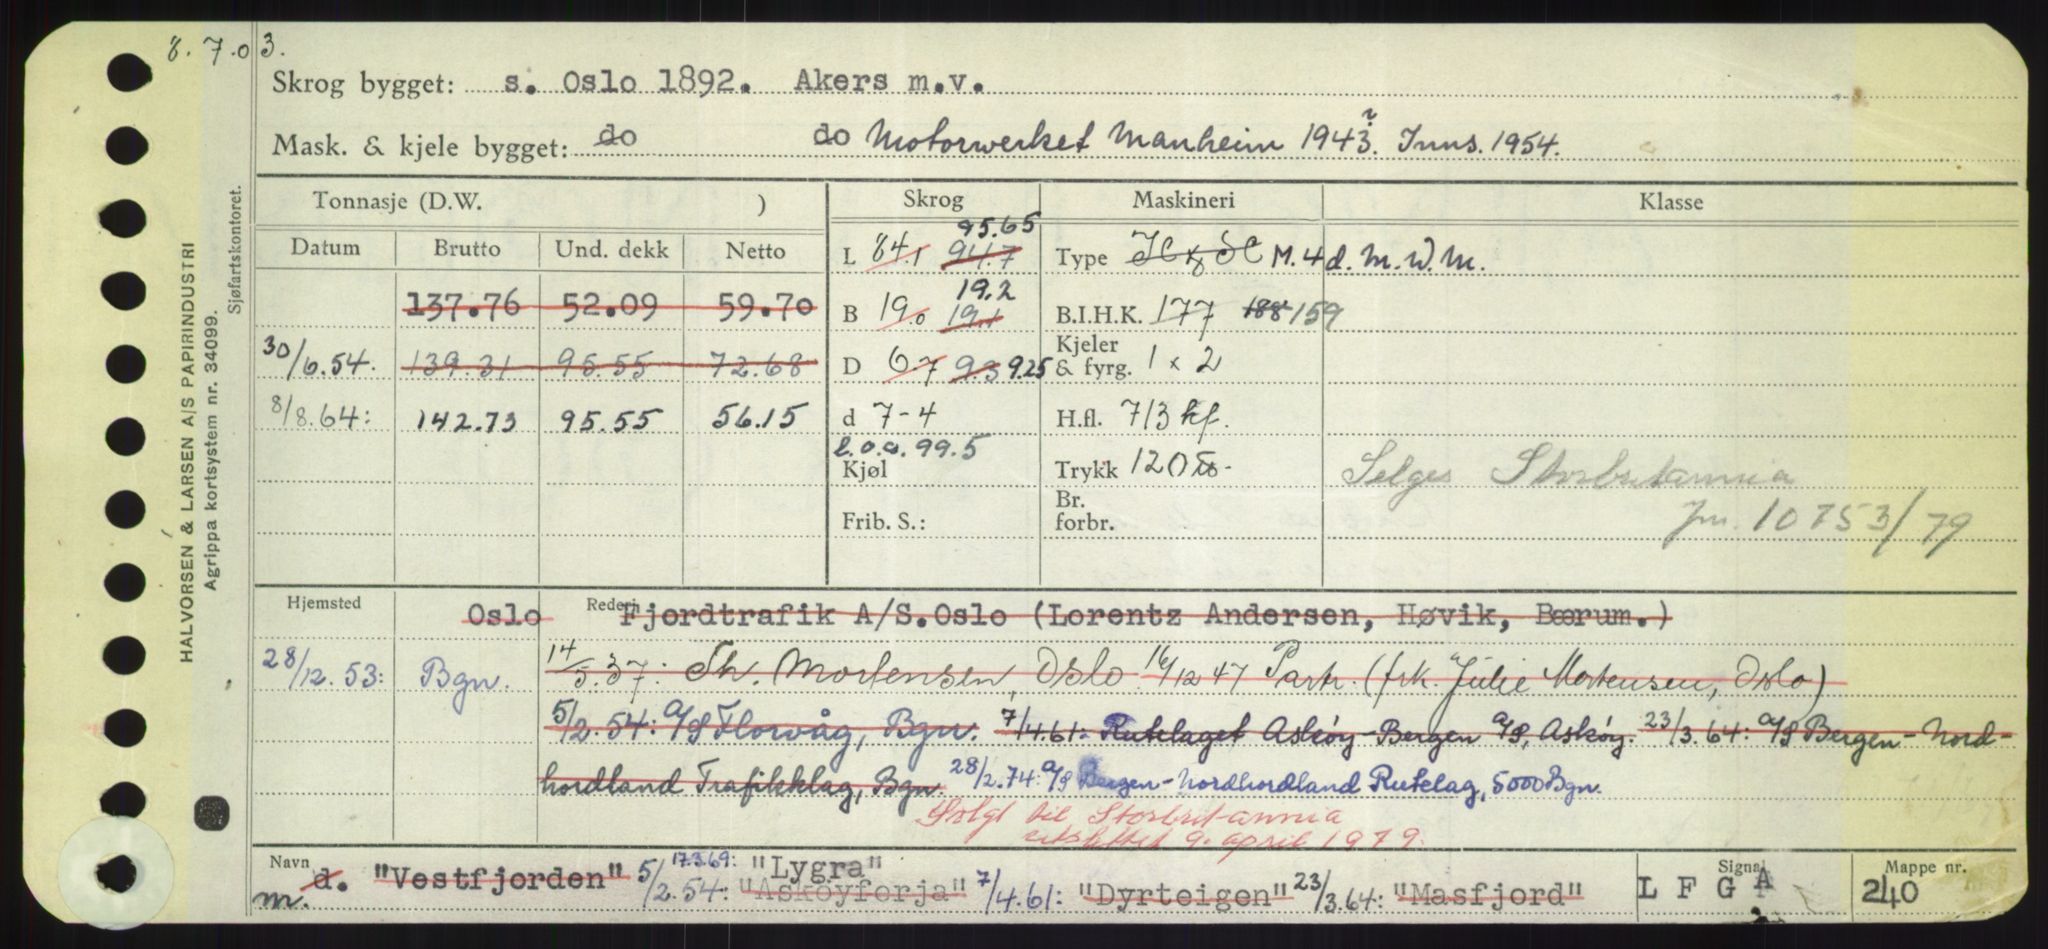 8.7.03.
Skrog bygget: s. Oslo 1892. Akers m.v.
Mask. & kjele bygget: do do Motorwerket Manheim 1943?. Inns. 1954.
Tonnasje (D.W. ) Skrog Maskineri Klasse
Datum Brutto Und. dekk Netto
L 84.1 94.7 95.65
Type M. 4 d. M.W.M.
137.76 52.09 59.70
B 19.0 19.1 19.2
B.I.H.K. 177 188 159
30/6.54. 139.31 95.55 72.68
D 6.7 9.3 9.25
Kjeler & fyrg. 1 x 2
8/8.64: 142.73 95.55 56.15
d 7-4
H.fl. 713 kf.
l.o.a. 99.5
Kjøl
Trykk 120
Selges Storbritannia
Jnr. 10753/79
Frib. S.:
Br. forbr.
Hjemsted Rederi
Oslo Fjordtrafik A/S.Oslo (Lorentz Andersen, Høvik, Bærum.)
28/12.53: Bgn. 14/5.37: Th. Mortensen, Oslo. 16/12 47 Partr. (frk. Julie Mortensen, Oslo)
5/2.54: A/S Florvåg, Bgn. 7/4.61: Rutelaget Askøy-Bergen A/S, Askøy. 23/3.64: A/S Bergen-Nord-
hordland Trafikklag, Bgn. 28/2.74: A/S Bergen-Nordhordland Rutelag, 5000 Bgn.
Solgt til Storbritannia
utslettet 9. april 1979.
Navn Signal Mappe nr.
17.3.69: "Lygra"
m. d. "Vestfjorden" 5/2.54: "Askøyforja" 7/4.61: "Dyrteigen" 23/3.64: "Masfjord" L F G A 240
HALVORSEN & LARSEN A/S PAPIRINDUSTRI
Agrippa kortsystem nr. 34099.
Sjøfartskontoret.